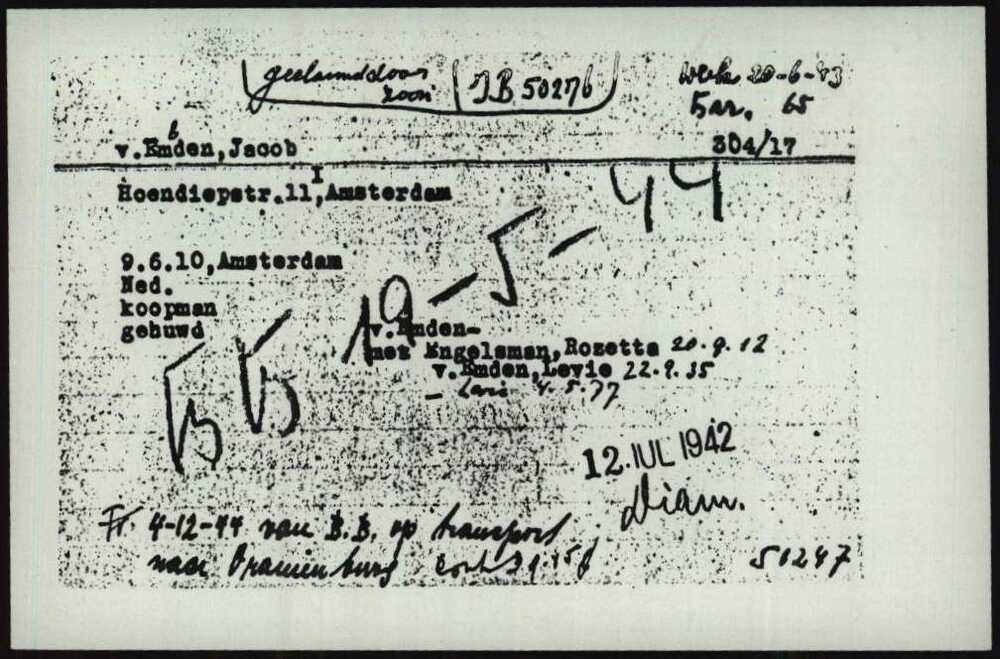 zoon JB 50276
Westb 20-6-43
Bar. 65
v.Emden, Jacob
304/17
Hoendiepstr.11 I, Amsterdam
19-5-44
9.6.10, Amsterdam
Ned.
koopman
gehuwd
BB
v.Emden-
met Engelsman, Rozette 20.9.12
v.Emden, Levie 22.9.35
12. IUL 1942
Diam.
4-12-44 van B.B. op transport
naar Oranienburg
50247